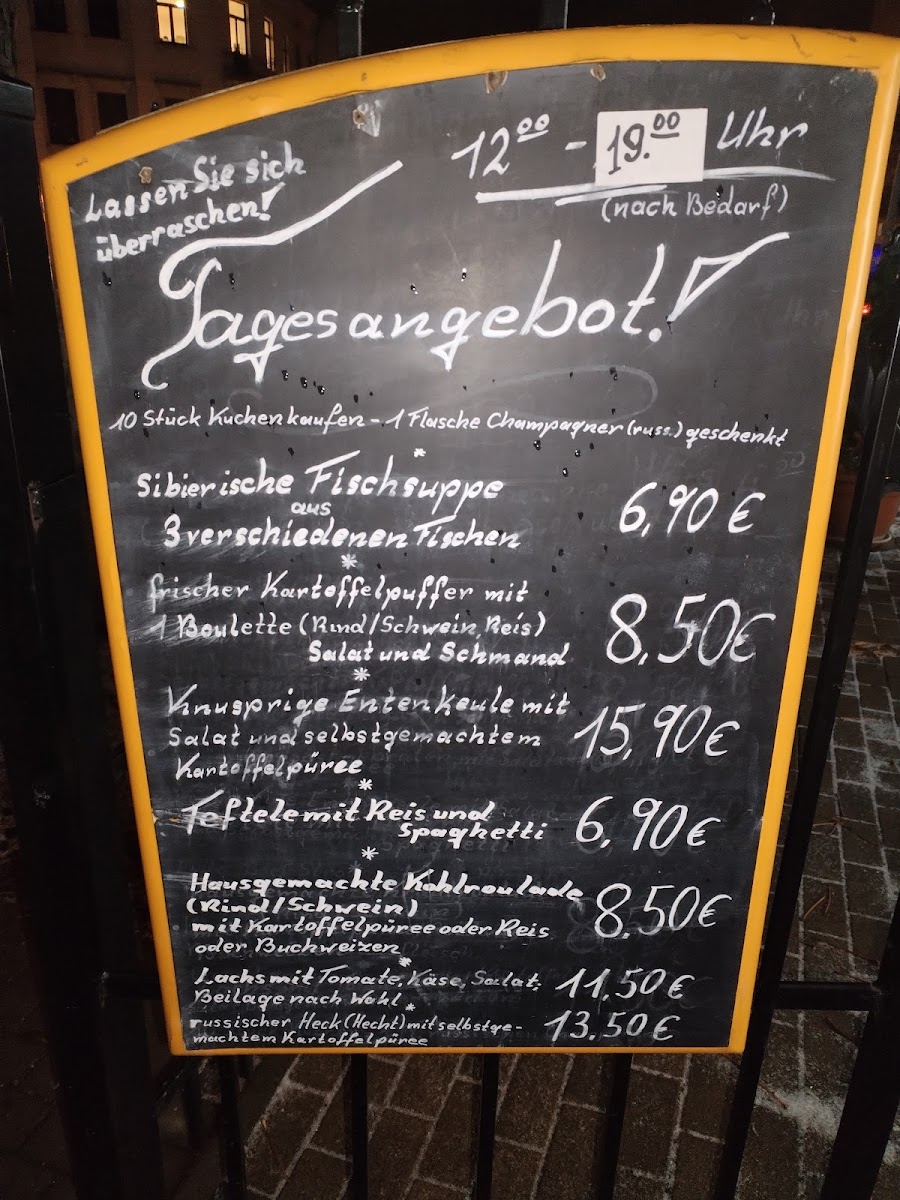 Lassen Sie sich
überraschen!
12 00 - 19.00 Uhr
(nach Bedarf)
Tagesangebot!
10 Stück Kuchen kaufen - 1 Flasche Champagner (russ.) geschenkt
*
Sibierische Fischsuppe
aus
3 verschiedenen Fischen
6,90 €
*
frischer Kartoffelpuffer mit
1 Boulette (Rind/Schwein, Reis)
Salat und Schmand
8,50 €
*
Knusprige Entenkeule mit
Salat und selbstgemachtem
Kartoffelpüree
15,90 €
*
Teftele mit Reis und
Spaghetti
6,90 €
*
Hausgemachte Kohlroulade
(Rind/Schwein)
mit Kartoffelpüree oder Reis
oder Buchweizen
8,50 €
*
Lachs mit Tomate, Käse, Salat,
Beilage nach Wahl
11,50 €
*
russischer Heck (Hecht) mit selbstge-
machtem Kartoffelpüree
13.50 €